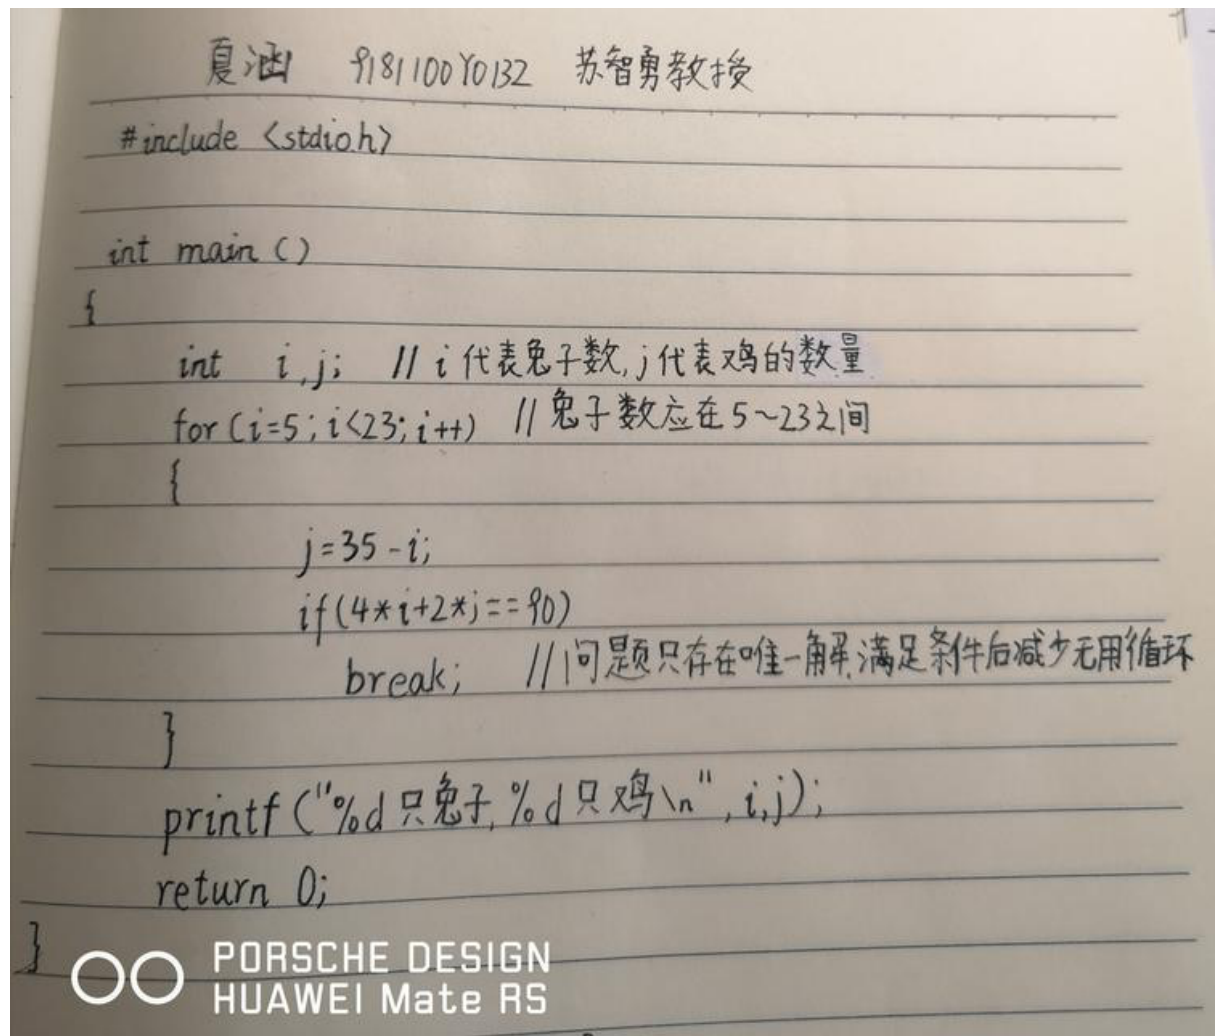 夏涵 9181100Y0132 苏智勇教授
#include <stdio.h>
int main ()
{
int i,j; // i代表兔子数,j代表鸡的数量
for (i=5; i<23; i++) // 兔子数应在5~23之间
{
j=35-i;
if(4*i+2*j==90)
break; //问题只存在唯一解,满足条件后减少无用循环
}
printf("%d只兔子,%d只鸡\n", i,j);
return 0;
}
PORSCHE DESIGN
HUAWEI Mate RS